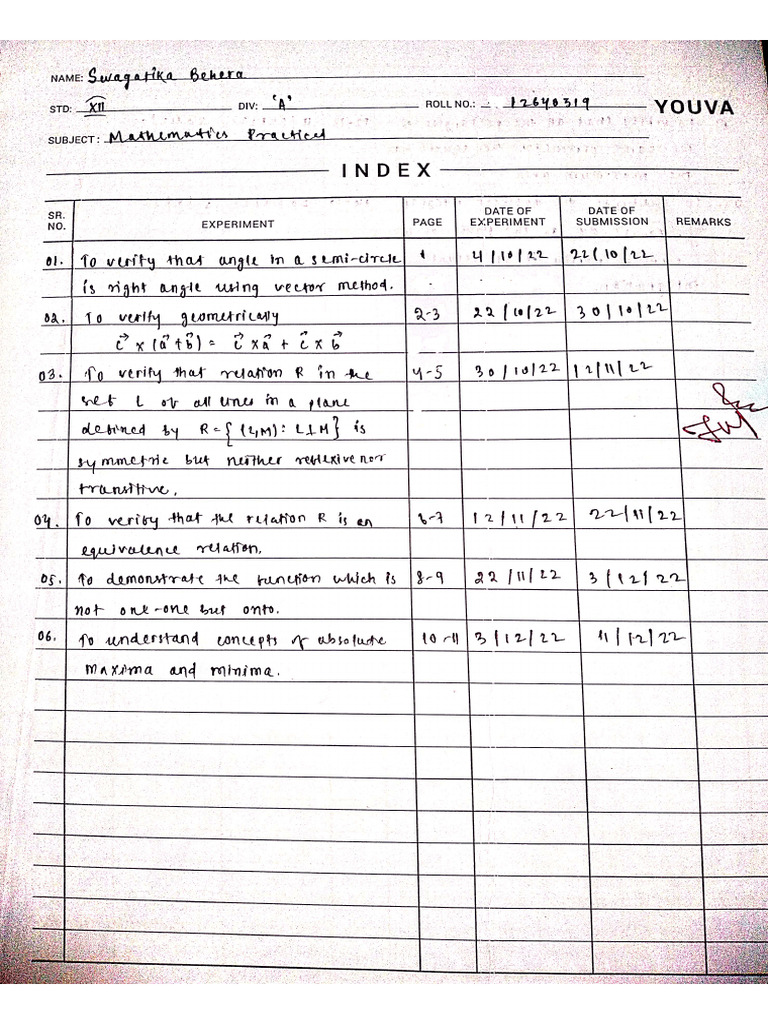 NAME: Swagatika Behera
STD: XII DIV: 'A' ROLL NO.: 12640319 YOUVA
SUBJECT: Mathematics Practical
INDEX
SR. NO. EXPERIMENT PAGE DATE OF EXPERIMENT DATE OF SUBMISSION REMARKS
01. To verify that angle in a semi-circle 1 4/10/22 22/10/22
is right angle using vector method.
02. To verify geometrically 2-3 22/10/22 30/10/22
c⃗ × (a⃗ + b⃗) = c⃗ × a⃗ + c⃗ × b⃗
03. To verify that relation R in the 4-5 30/10/22 12/11/22
set L of all lines in a plane
defined by R = {(L,M): L⊥M} is
symmetric but neither reflexive nor
transitive.
04. To verify that the relation R is an 6-7 12/11/22 22/11/22
equivalence relation.
05. To demonstrate the function which is 8-9 22/11/22 3/12/22
not one-one but onto.
06. To understand concepts of absolute 10-11 3/12/22 11/12/22
maxima and minima.